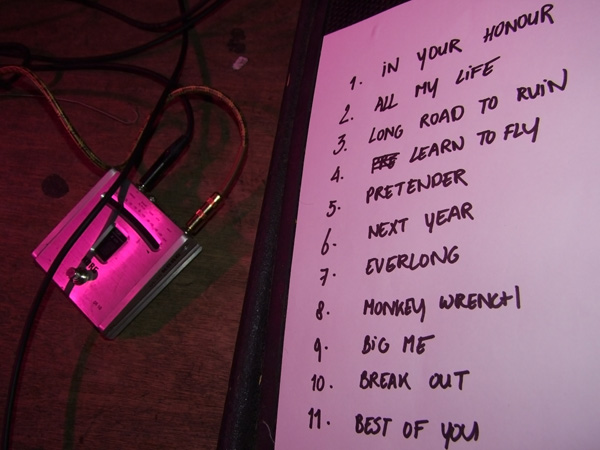 1. IN YOUR HONOUR
2. ALL MY LIFE
3. LONG ROAD TO RUIN
4. LEARN TO FLY
5. PRETENDER
6. NEXT YEAR
7. EVERLONG
8. MONKEY WRENCH
9. BIG ME
10. BREAK OUT
11. BEST OF YOU